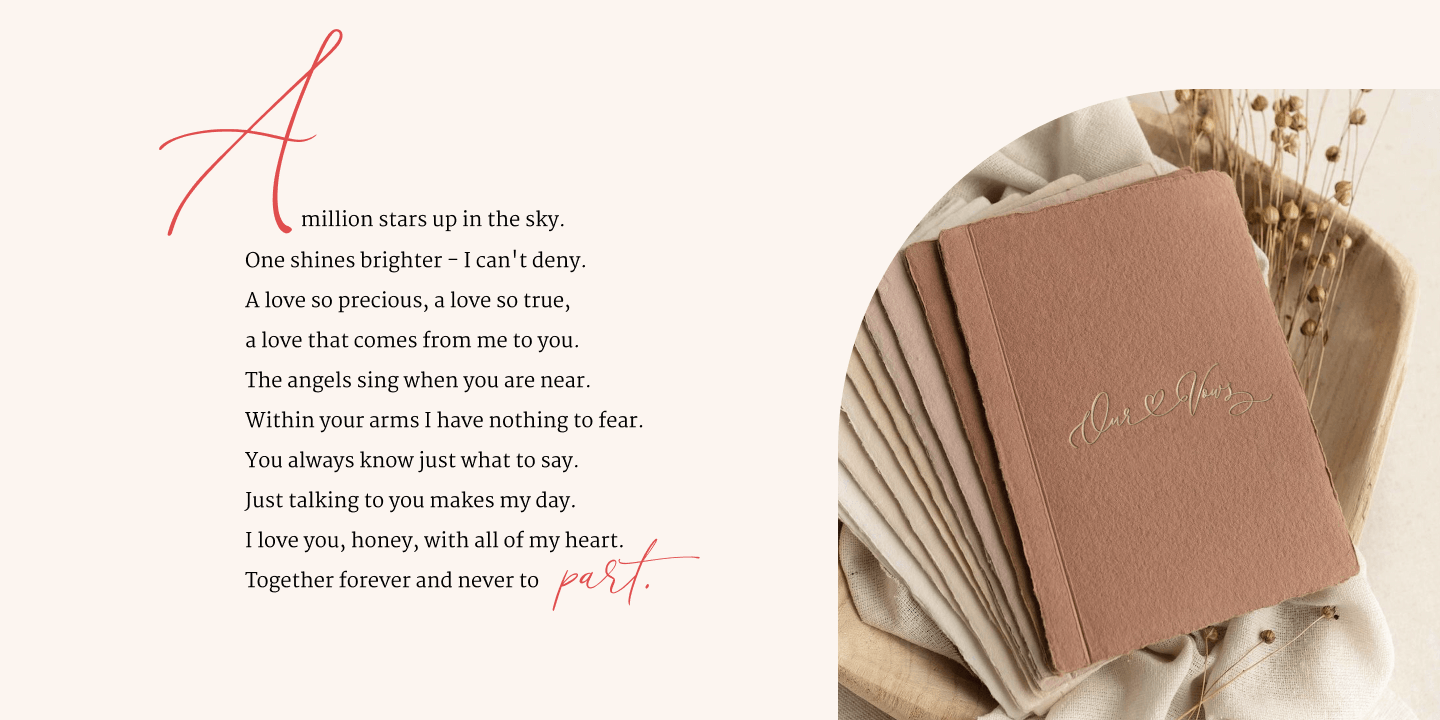 A million stars up in the sky.
One shines brighter – I can't deny.
A love so precious, a love so true,
a love that comes from me to you.
The angels sing when you are near.
Within your arms I have nothing to fear.
You always know just what to say.
Just talking to you makes my day.
I love you, honey, with all of my heart.
Together forever and never to part.
Our Vows